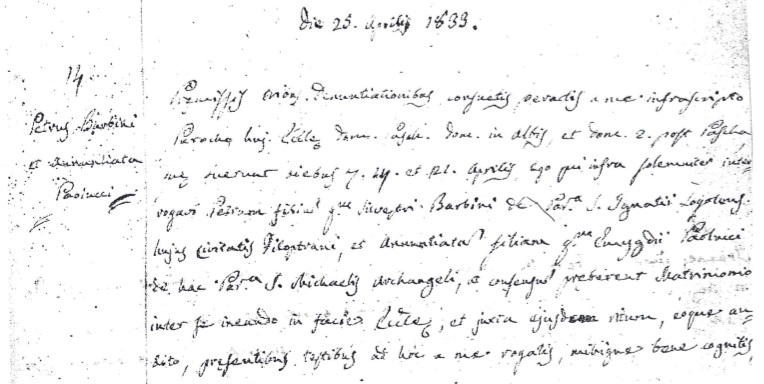 Die 25. Aprilis 1833.
14.
Petrus Barbini
et Annuntiata
Paolucci
Premissis tribus Denuntiationibus consuetis peractis a me infrascripto
Parocho huj. Eccle Dom. Pasch. Dom. in Albis, et Dom. 2. post Pascha
quae fuerunt diebus 7. 14. et 21. Aprilis Ego qui infra solemniter inter-
rogavi Petrum filium qm Silvestri Barbini de Par.a S. Ignatii Lojolens.
hujus Civitatis Filoptrani, et Annuntiatam filiam qm Emygdii Paolucci
de hac Par.a S. Michaelis Archangeli, ut consensus preberent Matrimonio
inter se ineundo in facie Eccle, et juxta ejusdem ritum, eoque au-
dito, presentibus testibus ad hoc a me rogatis, mihique bene cognitis,